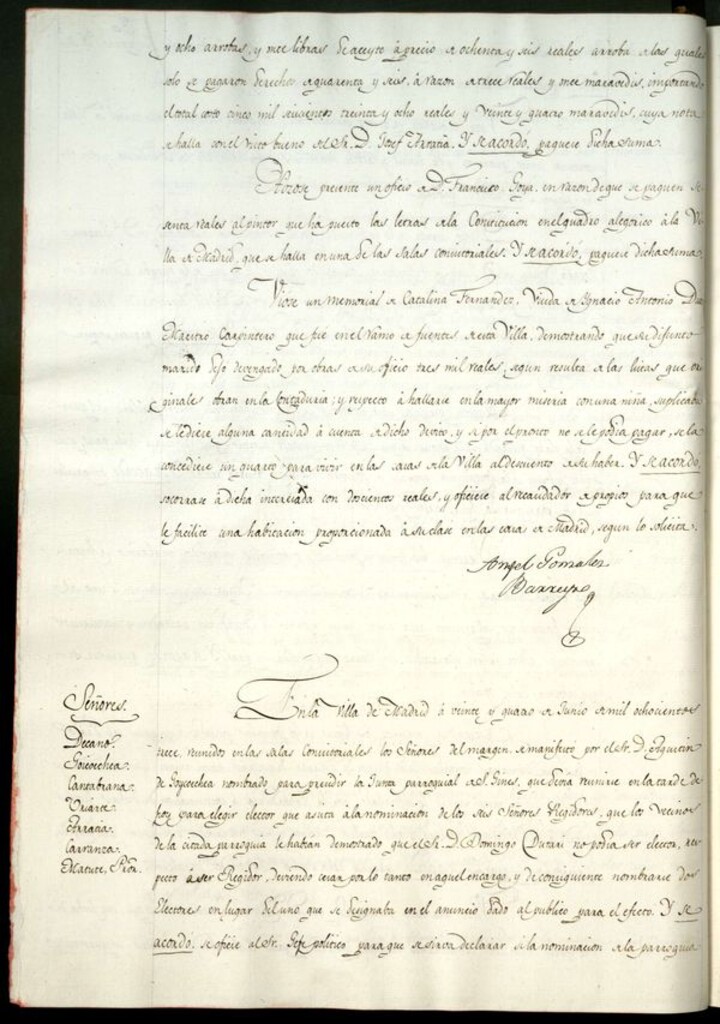 y ocho arrobas, y once libras de aceyte à precio de ochenta y seis reales arroba de las quales
solo se pagaron derechos de quarenta y seis, à razon de trece reales y once maravedis, importando
el total cinco mil seiscientos treinta y ocho reales y veinte y quatro maravedis, cuya nota
se halla con el visto bueno del Sr. D. Josef Arratia. Y se acordó, paguese dicha suma.
Hizose presente un oficio de D. Francisco Goya, en razon de que se paguen se
senta reales al pintor que ha puesto las letras de la Constitucion en el quadro alegorico à la Vi
lla de Madrid, que se halla en una de las salas consistoriales. Y se acordó, paguese dicha suma.
Viose un memorial de Catalina Fernandez, Viuda de Ignacio Antonio
Maestro Carpintero que fue en el ramo de fuentes de esta Villa, demostrando que su difunto
marido dejo devengado por obras de su oficio tres mil reales, segun resulta de las listas que ori
ginales obran en la Contaduria; y respecto à hallarse en la mayor miseria con una niña, suplicaba
se le diese alguna cantidad à cuenta de dicho devito, y si por el pronto no se le podia pagar, se la
concediese un quarto para vivir en las casas de la Villa al descuento de su haber. Y se acordó,
socorrase à dicha interesada con doscientos reales, y oficiese al recaudador de propios para que
le facilite una habitacion proporcionada à su clase en las casas de Madrid, segun lo solicita.
Angel Gonzalez
Barreyro
Señores.
Decano.
Goicoechea.
Cantabrana.
Uriarte.
Arratia.
Carranza.
Matute, Pror.
En la Villa de Madrid à veinte y quatro de Junio de mil ochocientos
trece, reunidos en las salas Consistoriales los Señores del margen, se manifesto por el Sr. D. Agustin
de Goycoechea nombrado para presidir la Junta parroquial de S. Gines, que devia reunirse en la tarde de
hoy para elegir elector que asista à la nominacion de los seis Señores Regidores, que los Vecinos
de la citada parroquia le habian demostrado que el Sr. D. Domingo Dutari no podia ser elector, res
pecto à ser Regidor, deviendo cesar por lo tanto en aquel encargo, y de consiguiente nombrarse dos
Electores en lugar del uno que se designaba en el anuncio dado al publico para el efecto. Y se
acordó se oficie al Sr. Gefe politico para que se sirva declarar si la nominacion de la parroquia